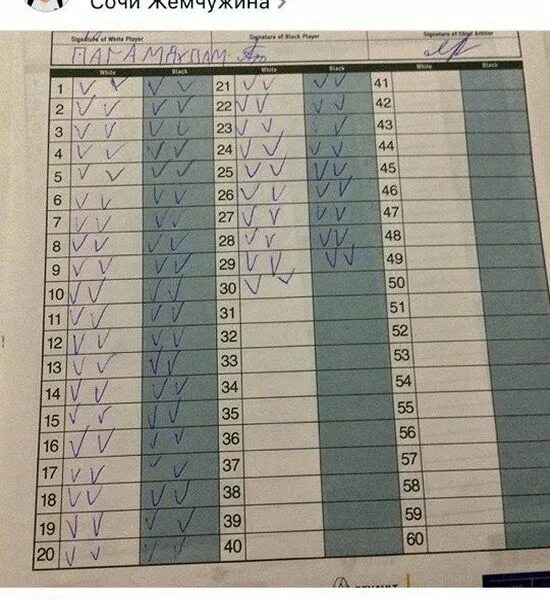 Сочи Жемчужина
Signature of White Player Signature of Black Player Signature of Chief Arbiter
White Black White Black White Black
1 21 41
2 22 42
3 23 43
4 24 44
5 25 45
6 26 46
7 27 47
8 28 48
9 29 49
10 30 50
11 31 51
12 32 52
13 33 53
14 34 54
15 35 55
16 36 56
17 37 57
18 38 58
19 39 59
20 40 60